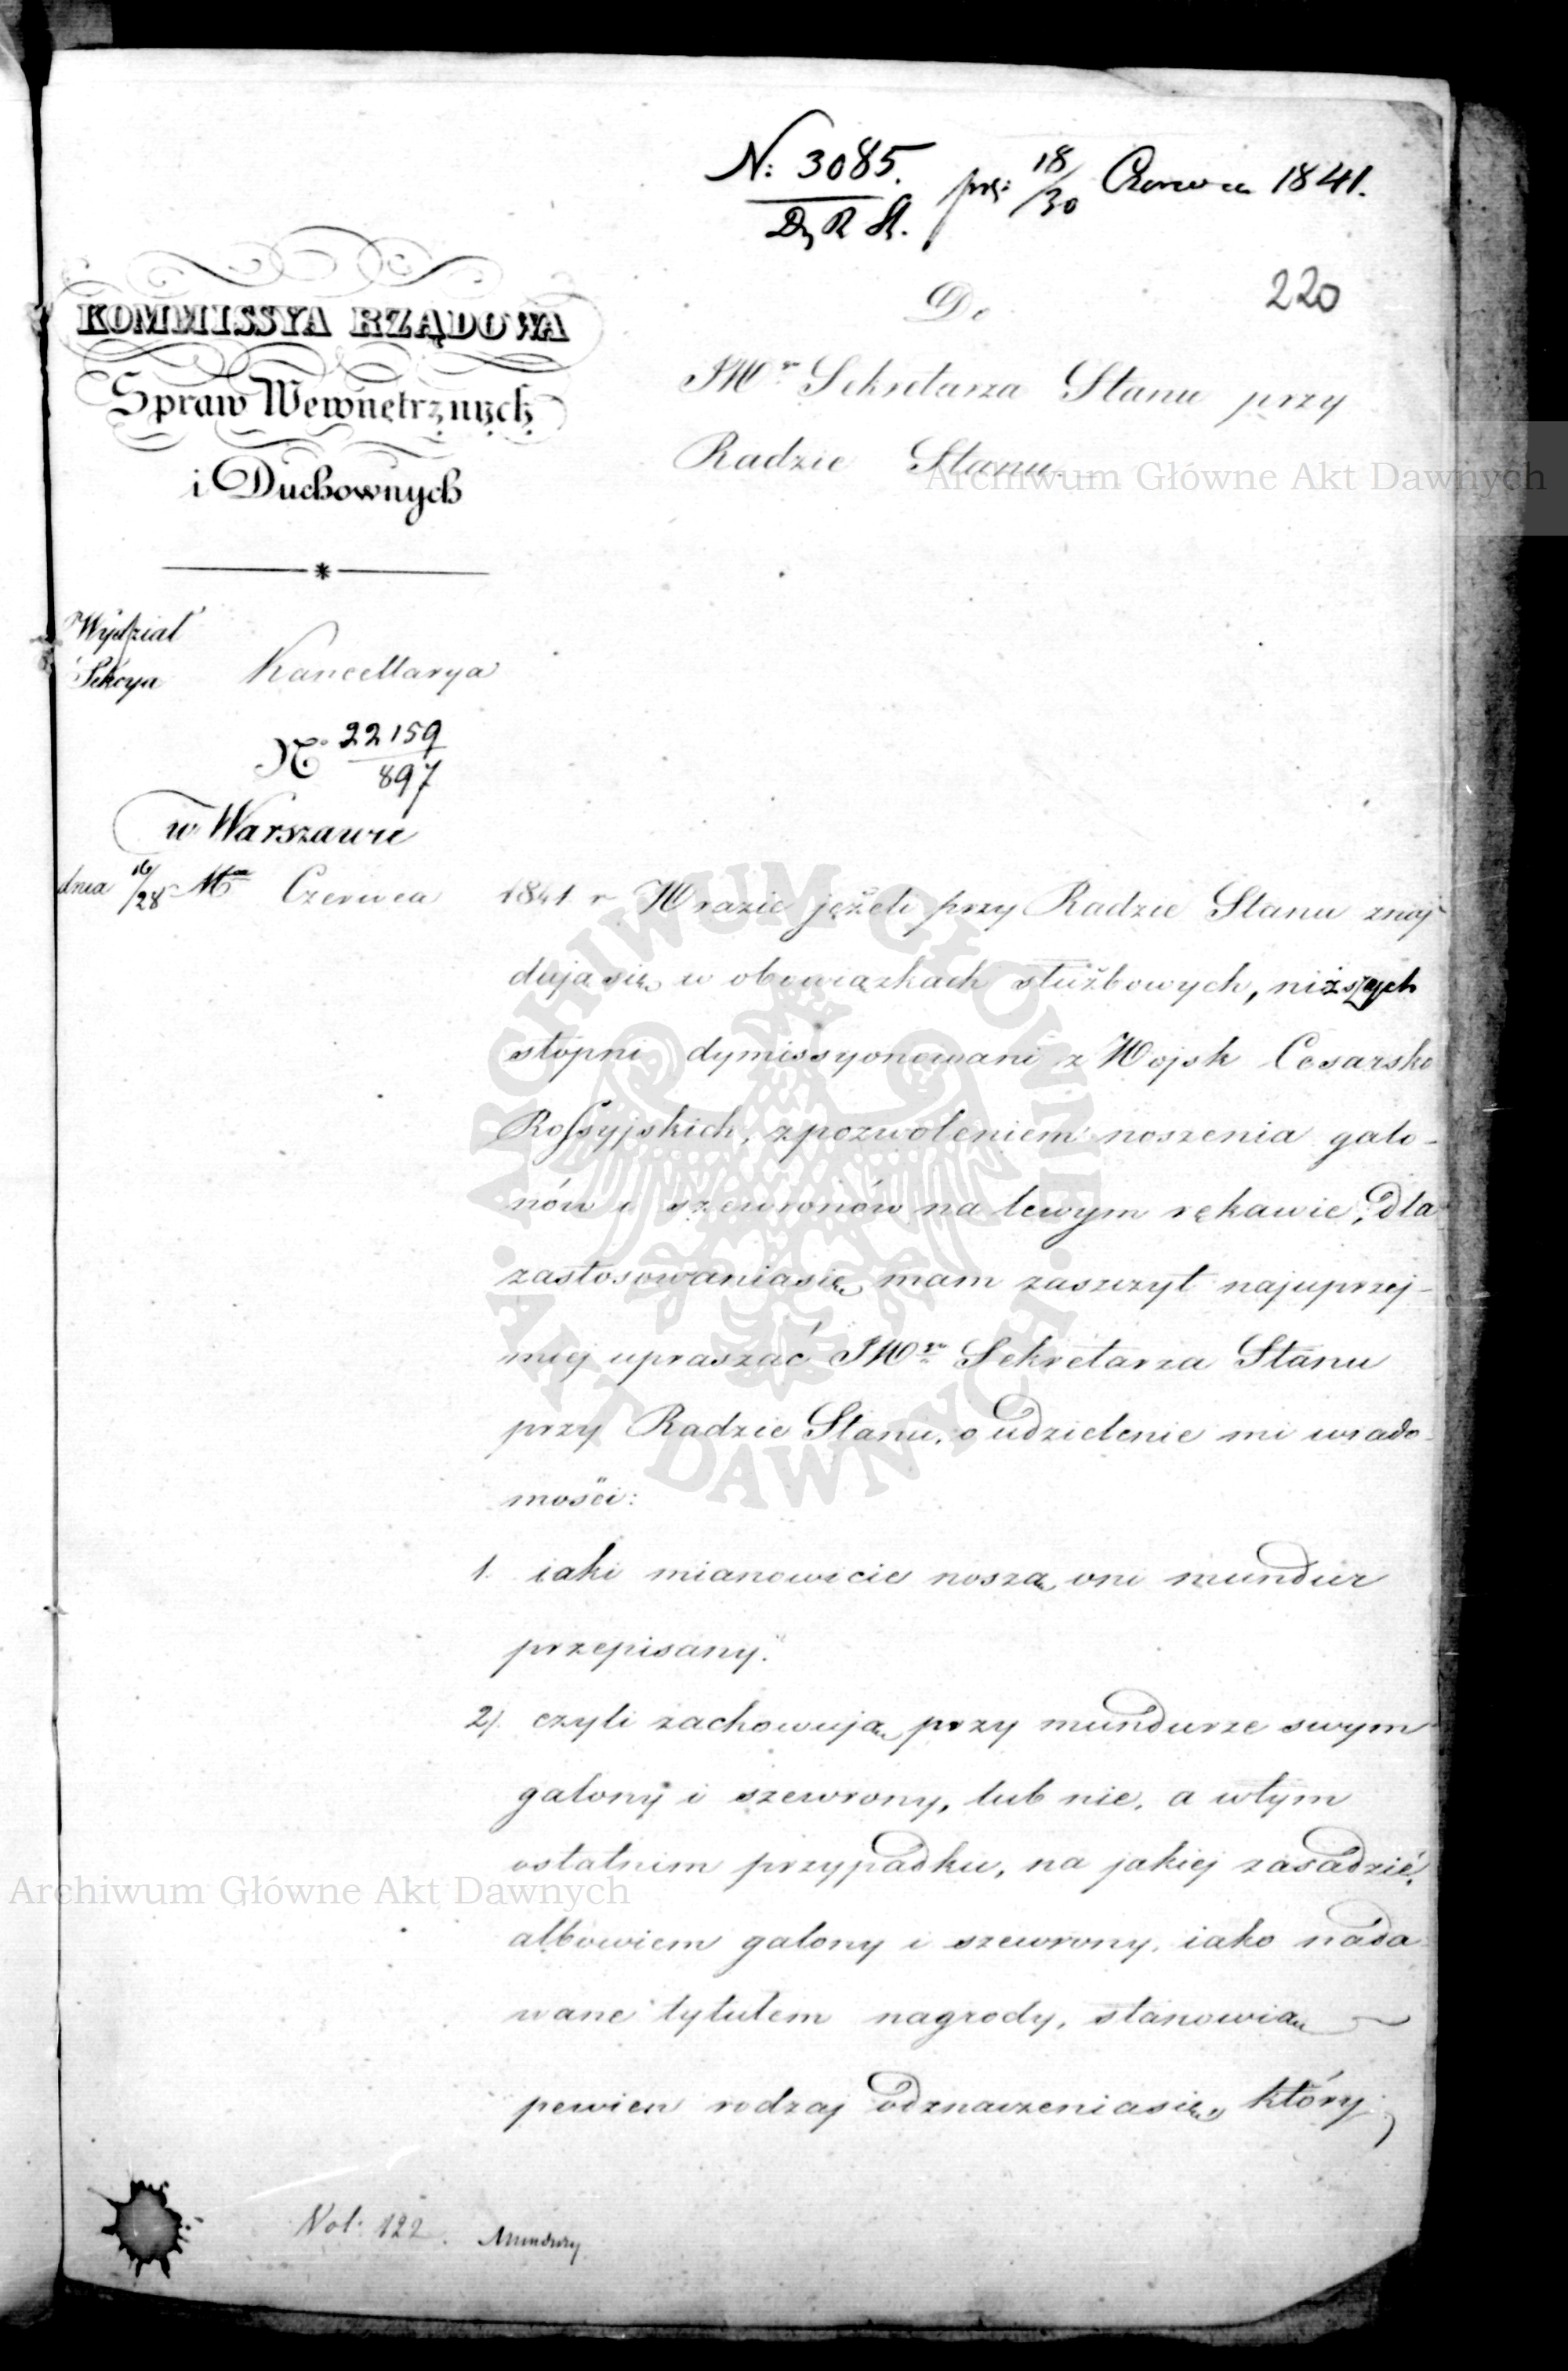 N: 3085.
Dz R St.
prz: 18/30 Czerwca 1841.
220
KOMMISSYA RZĄDOWA
Spraw Wewnętrznych
i Duchownych
Do
JWo Sekretarza Stanu przy
Radzie Stanu.
Wydział
Sekcya Kancellarya
No 22159
897
w Warszawie
dnia 16/28 Mca Czerwca 1841 r W razie jeżeli przy Radzie Stanu znaj
dują się w obowiązkach służbowych, niższych
stopni dymissyonowani z Wojsk Cesarsko
Rossyjskich, z pozwoleniem noszenia galo-
nów i szewronów na lewym rękawie, dla
zastosowania się, mam zaszczyt najuprzej-
miej upraszać JWo Sekretarza Stanu
przy Radzie Stanu, o udzielenie mi wiado-
mości:
1. iaki mianowicie noszą oni mundur
przepisany.
2). czyli zachowują przy mundurze swym
galony i szewrony, lub nie, a w tym
ostatnim przypadku, na jakiej zasadzie,
albowiem galony i szewrony, iako nada
wane tytułem nagrody, stanowią
pewien rodzaj odznaczenia się, który
Vol: 122. Mundury
Archiwum Główne Akt Dawnych
Archiwum Główne Akt Dawnych
ARCHIWUM GŁÓWNE
AKT DAWNYCH